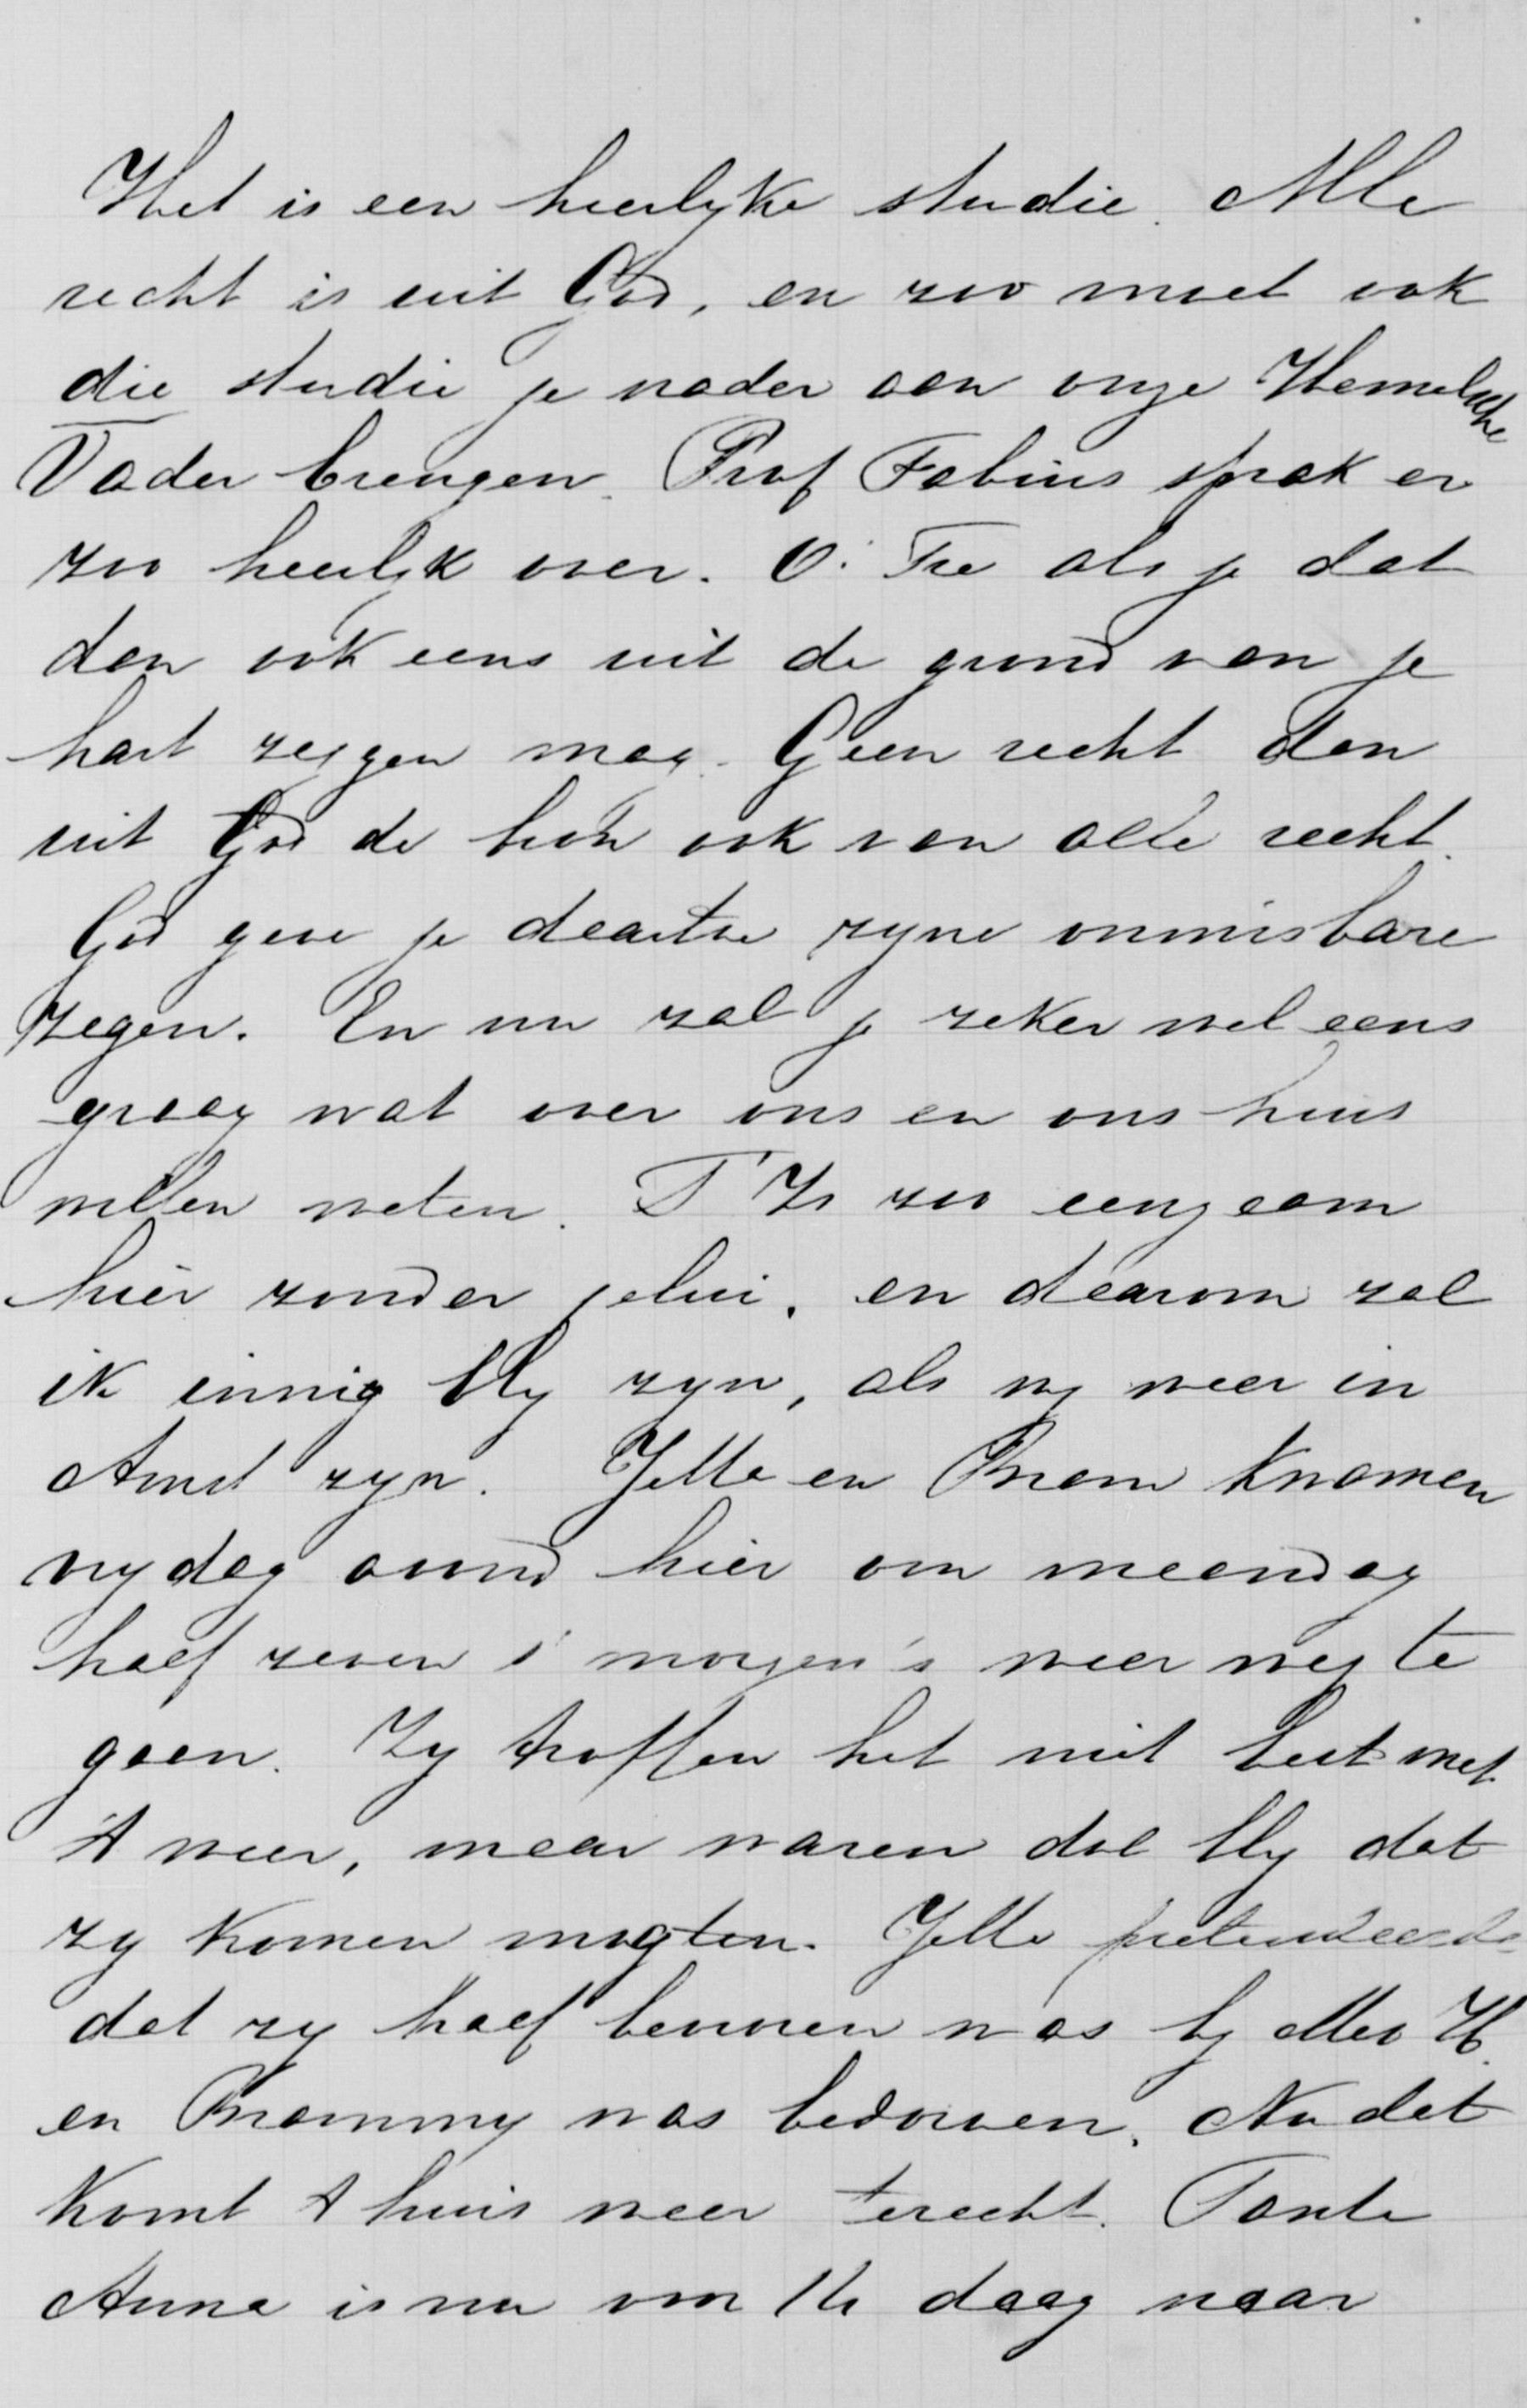 Het is een heerlyke studie. Alle
recht is uit God, en zoo moet ook
die studie je nader aan onze Hemelsche
Vader brengen. Prof Fabius sprak er
zoo heerlyk over. O. Fre als je dat
dan ook eens uit de grond van je
hart zeggen mag. Geen recht dan
uit God de bron ook van alle recht.
God geve je daartoe zyne onmisbare
zegen. En nu zal je zeker wel eens
graag wat over ons en ons huis
willen weten. T'Is zoo eenzaam
hier zonder jelui, en daarom zal
ik innig bly zyn, als wy weer in
Amst zyn. Jetta en Bram kwamen
vrydag avond hier om maandag
half zeven s' morgen's weer weg te
gaan. Zy troffen het niet best met
't weer, maar waren dol bly dat
zy komen mogten. Jetta pretendeerde
dat zy half bevroren was by Mev H.
en Brammy was bedorven. Nu dat
komt t huis weer terecht. Tante
Anna is nu voor 14 daag naar